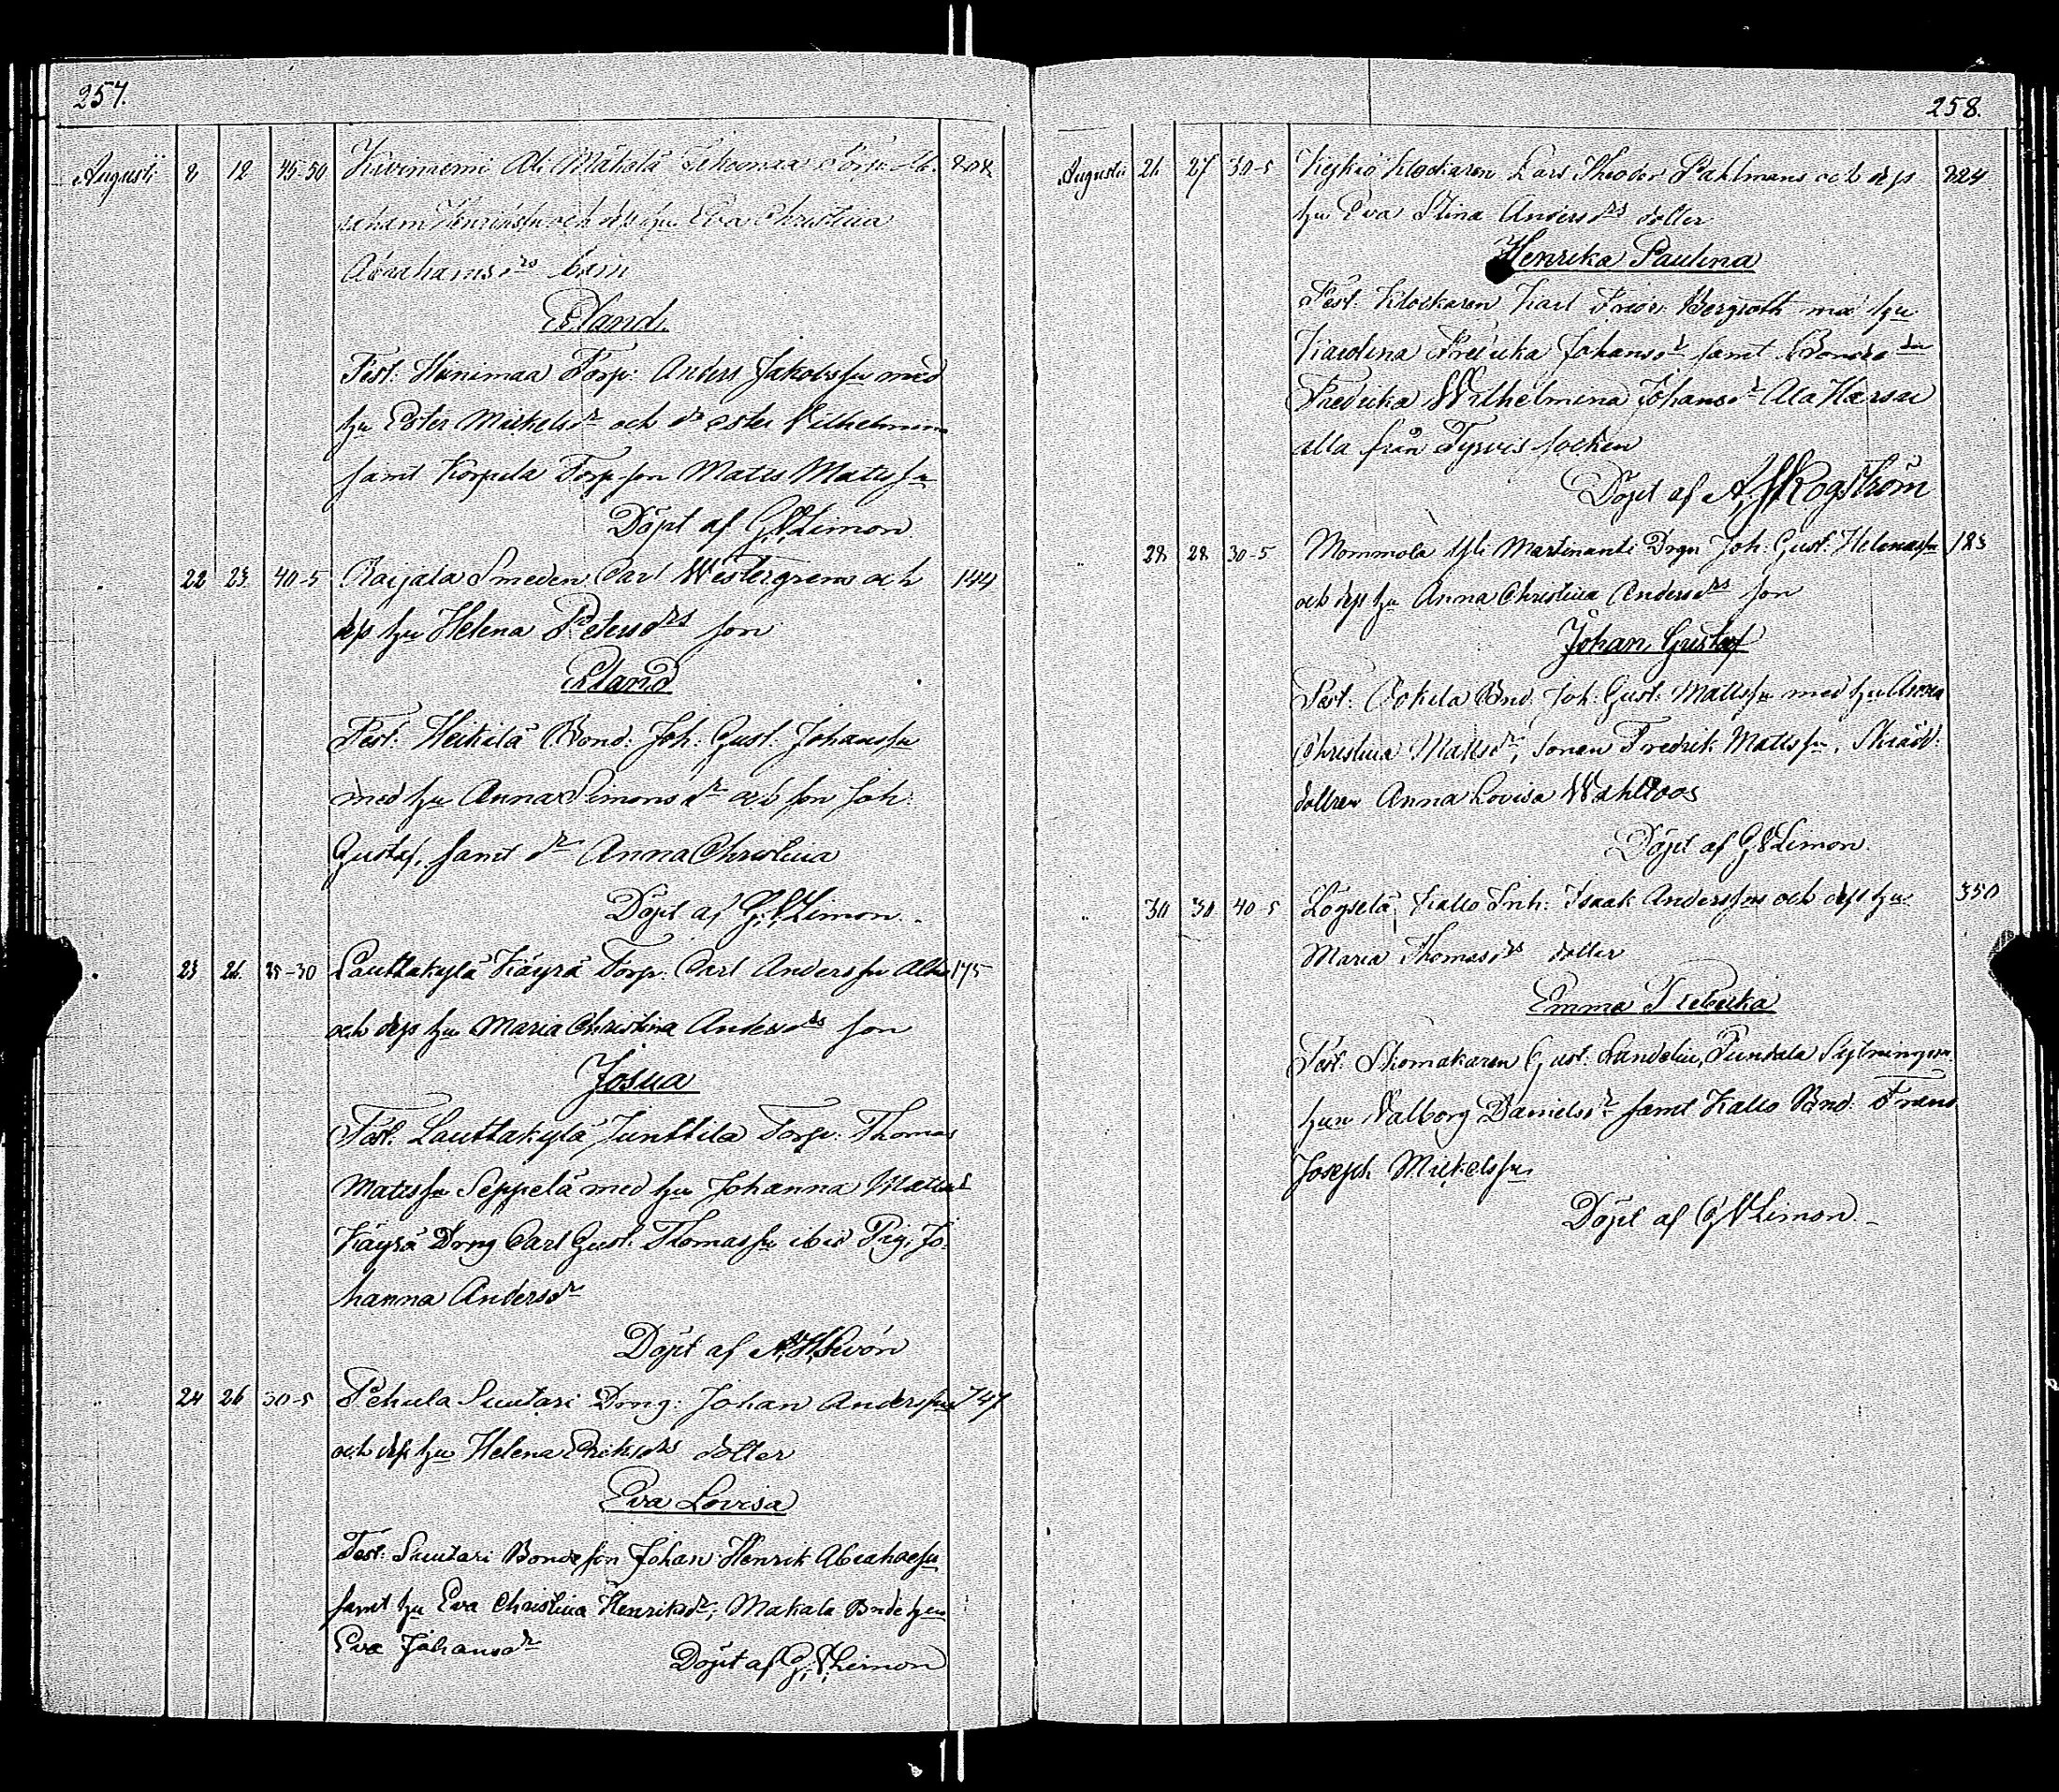 257.
Augusti 8 12 45-50 Kiviniemi Ali Mähälä Torp: Ab- 808
raham Henrikssn och dess hu Eva Christina
Abrahamsdrs barn
Erland
Test: Hiinimaa Torp: Anders Jakobssn med
hu Ester Mickelsdr och dr Ester Vilhelmina
samt Korpela Torp son Matts Mattssn
Döpt af G. V. Limon.
" 22 23 40-5 Raijala Smeden Carl Westergren och 144
dess hu Helena Petersdrs son
Erland
Test: Heikilä Bond: Joh: Gust: Johanssn
med hu Anna Simonsdr och son Joh:
Gustaf, samt dr Anna Christina
Döpt af G. V. Limon.
" 23 26 25-30 Lauttakylä Käyrä Torp: Carl Anderssn 175
och dess hu Maria Christina Andersdrs son
Josua
Test: Lauttakylä Junttila Torp: Thomas
Mattssn Seppelä med hu Johanna Mattsd
Käyrä Dreng Carl Gust: Thomassn ibid Pig: Jo-
hanna Andersdr
Döpt af
" 24 26 30-5 Pehula Suutari Dreng: Johan Anderssns 747
och dess hu Helena Eriksdrs dotter
Eva Lovisa
Test: Suutari Bondeson Johan Henrik Abrahamssn
samt hu Eva Christina Henriksdr, Makala Bonde hu
Eva Johansdr Döpt af G. V. Limon
258.
Augusti 26 27 30-5 Keikiö Klockaren Lars Theodor Pahlmans och dess 824
hu Eva Stina Andersdrs dotter
Henrika Paulina
Test: Klockaren Karl Fredr: Bergroth med hu
Karolina Fredrika Johansdr samt Bonde dr
Fredrika Wilhelmina Johansdr Ala Harsu
alla från Tyrvis socken
Döpt af A. Skogström
" 28 28 30-5 Mommola Yli Martinanti Dreng Joh: Gust: Helenassn 183
och dess hu Anna Christina Andersdrs son
Johan Gustaf
Test: Ookila Bnd: Joh: Gust: Mattssn med hu Anna
Christina Mattsdr, sonen Fredrik Mattssn, Skrädd:
dottren Anna Lovisa Wahlroos
Döpt af G V Limon.
" 30 30 40-5 Logselä, Kallo Inh: Isaak Anderssns och dess hu 350
Maria Thomasdrs dotter
Emma Fredrika
Test: Skomakaren Gust: Sandelin, Puntala Sytningsm:
hun Valborg Danielsdr samt Kallo Bnd: Frans
Joseph Mickelssn
Döpt af G V Limon.